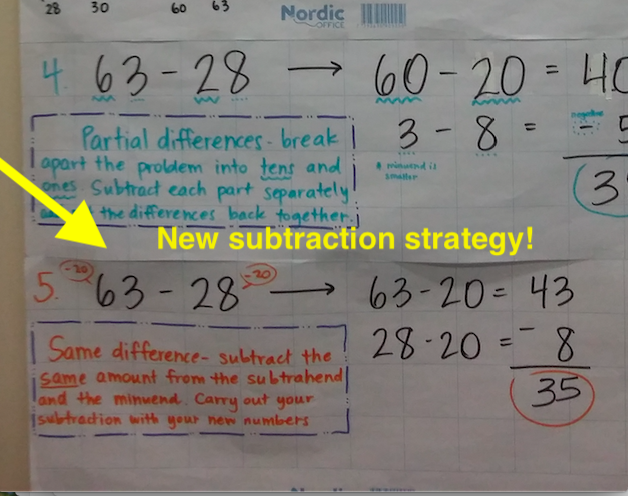 28 30 60 63
Nordic
OFFICE
4. 63 - 28 → 60 - 20 = 40
3 - 8 = - 5
negative
A minuend is
smaller
3
Partial differences - break
apart the problem into tens and
ones. Subtract each part separately
the differences back together.
New subtraction strategy!
5. -20 63 - 28 -20 → 63 - 20 = 43
28 - 20 = - 8
35
Same difference - subtract the
same amount from the subtrahend
and the minuend. Carry out your
subtraction with your new numbers